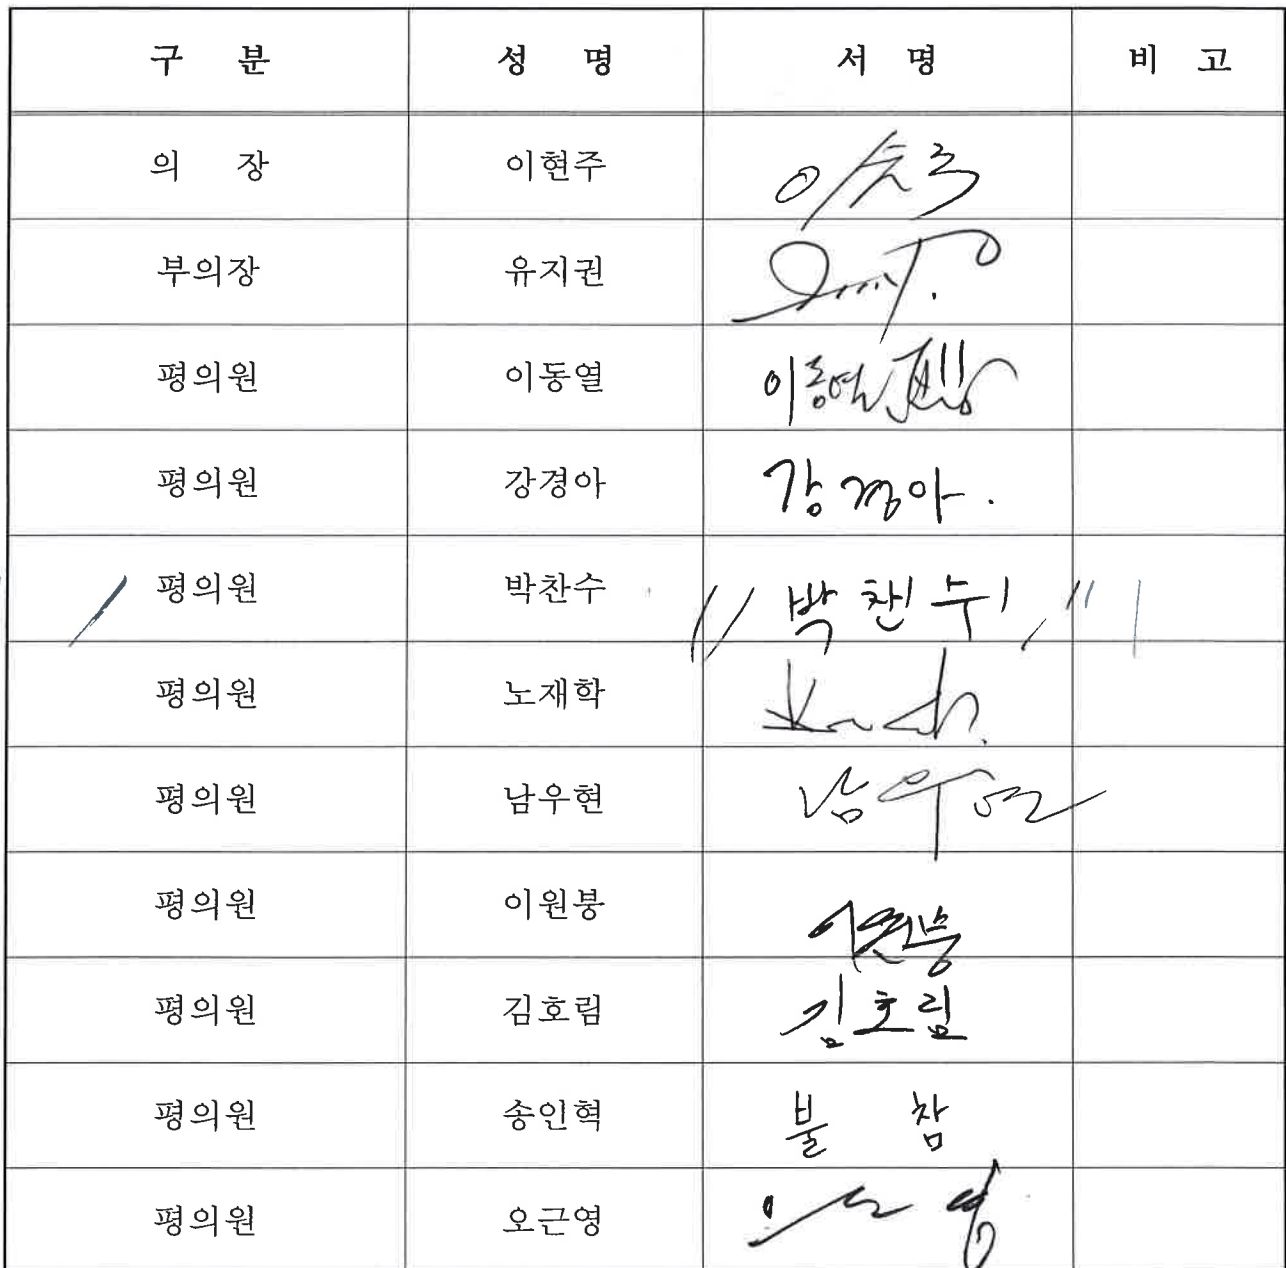 구 분 성 명 서 명 비 고
의 장 이현주
부의장 유지권
평의원 이동열 이동열
평의원 강경아 강경아.
평의원 박찬수 박찬수
평의원 노재학
평의원 남우현 남우현
평의원 이원붕 이원붕
평의원 김호림 김호림
평의원 송인혁 불 참
평의원 오근영